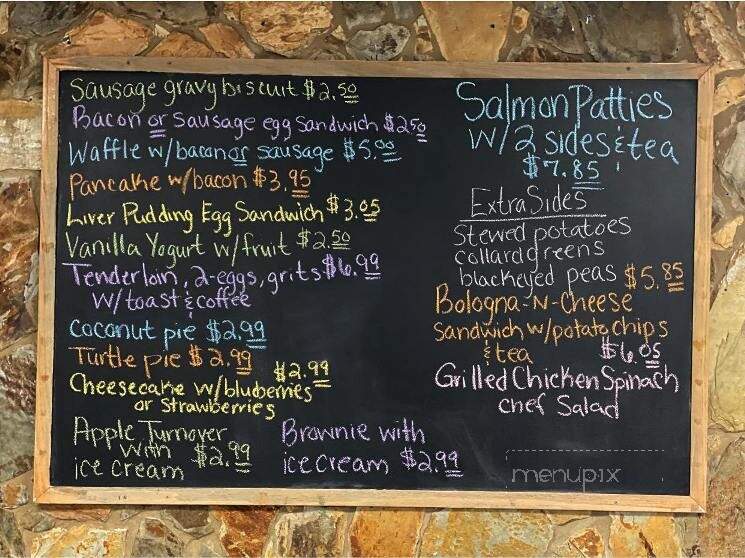 Sausage gravy biscuit $2.50
Bacon or sausage egg sandwich $2.50
Waffle w/bacon or sausage $5.00
Pancake w/bacon $3.95
Liver Pudding Egg Sandwich $3.05
Vanilla Yogurt w/fruit $2.50
Tenderloin, 2-eggs, grits $6.99
w/toast & coffee
coconut pie $2.99
Turtle pie $2.99
Cheesecake w/bluberries $2.99
or Strawberries
Apple Turnover
with
ice cream $2.99
Brownie with
ice cream $2.99
Salmon Patties
w/2 sides & tea
$7.85
Extra Sides
Stewed potatoes
collard greens
blackeyed peas
$5.85
Bologna-N-Cheese
sandwich w/potato chips
& tea $6.05
Grilled Chicken Spinach
chef Salad
menupix